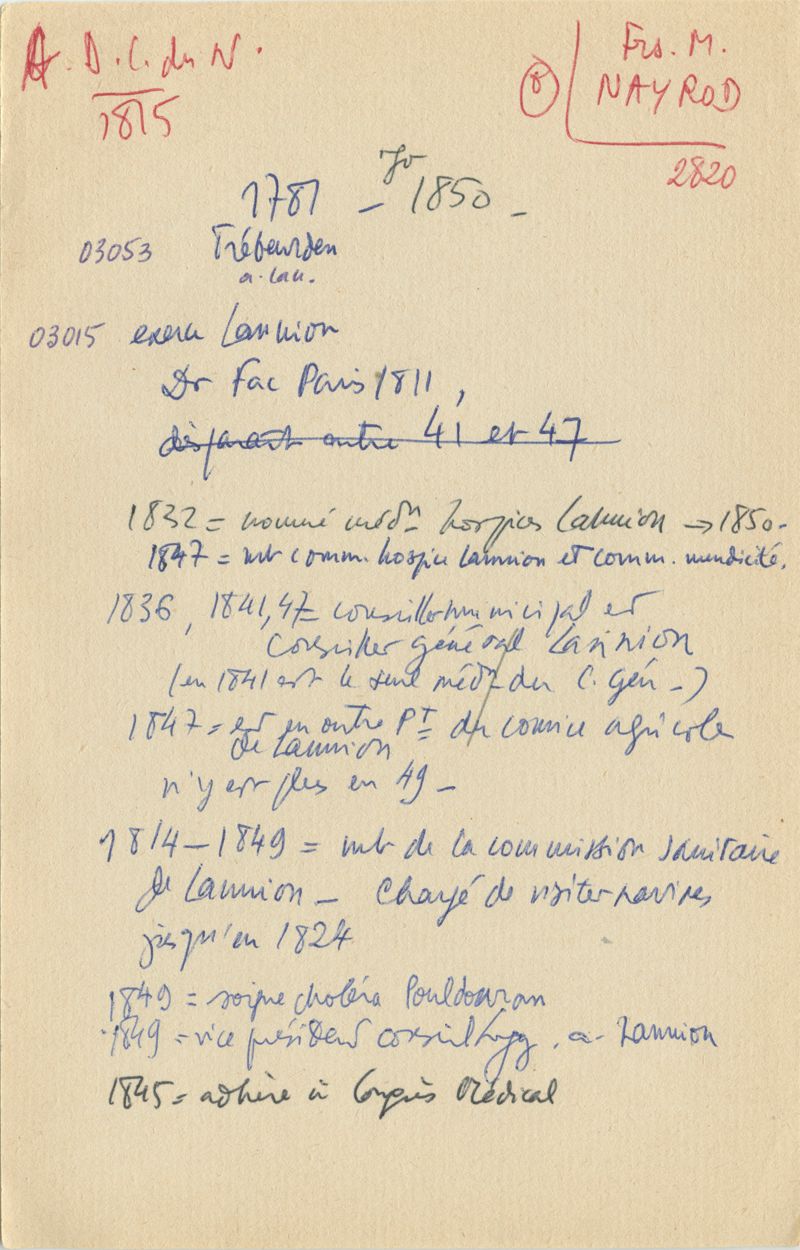 A. D. C. du N.
1815
Frs. M.
NAYROD
2820
1781 - 1850 -
03053 Trébeurden
a. Lan.
03015 exerce Lannion
Dr Fac Paris 1811,
disparait entre 41 et 47
1832 = nommé médn hospices Lannion → 1850-
1847 = mb comm. hospice Lannion et comm. mendicité.
1836, 1841, 47 = conseiller municipal et
conseiller général Lannion
(en 1841 est le seul médn du C. gén -)
1847 = est en outre PT du comice agricole
de Lannion
n'y est plus en 49 -
1814 - 1849 = mb de la commission sanitaire
de Lannion - Chargé de visiter navires
jusqu'en 1824
1849 = soigne choléra Pouldouran
1849 = vice président conseil hyg. a- Lannion
1845 = adhère à Congrès Médical